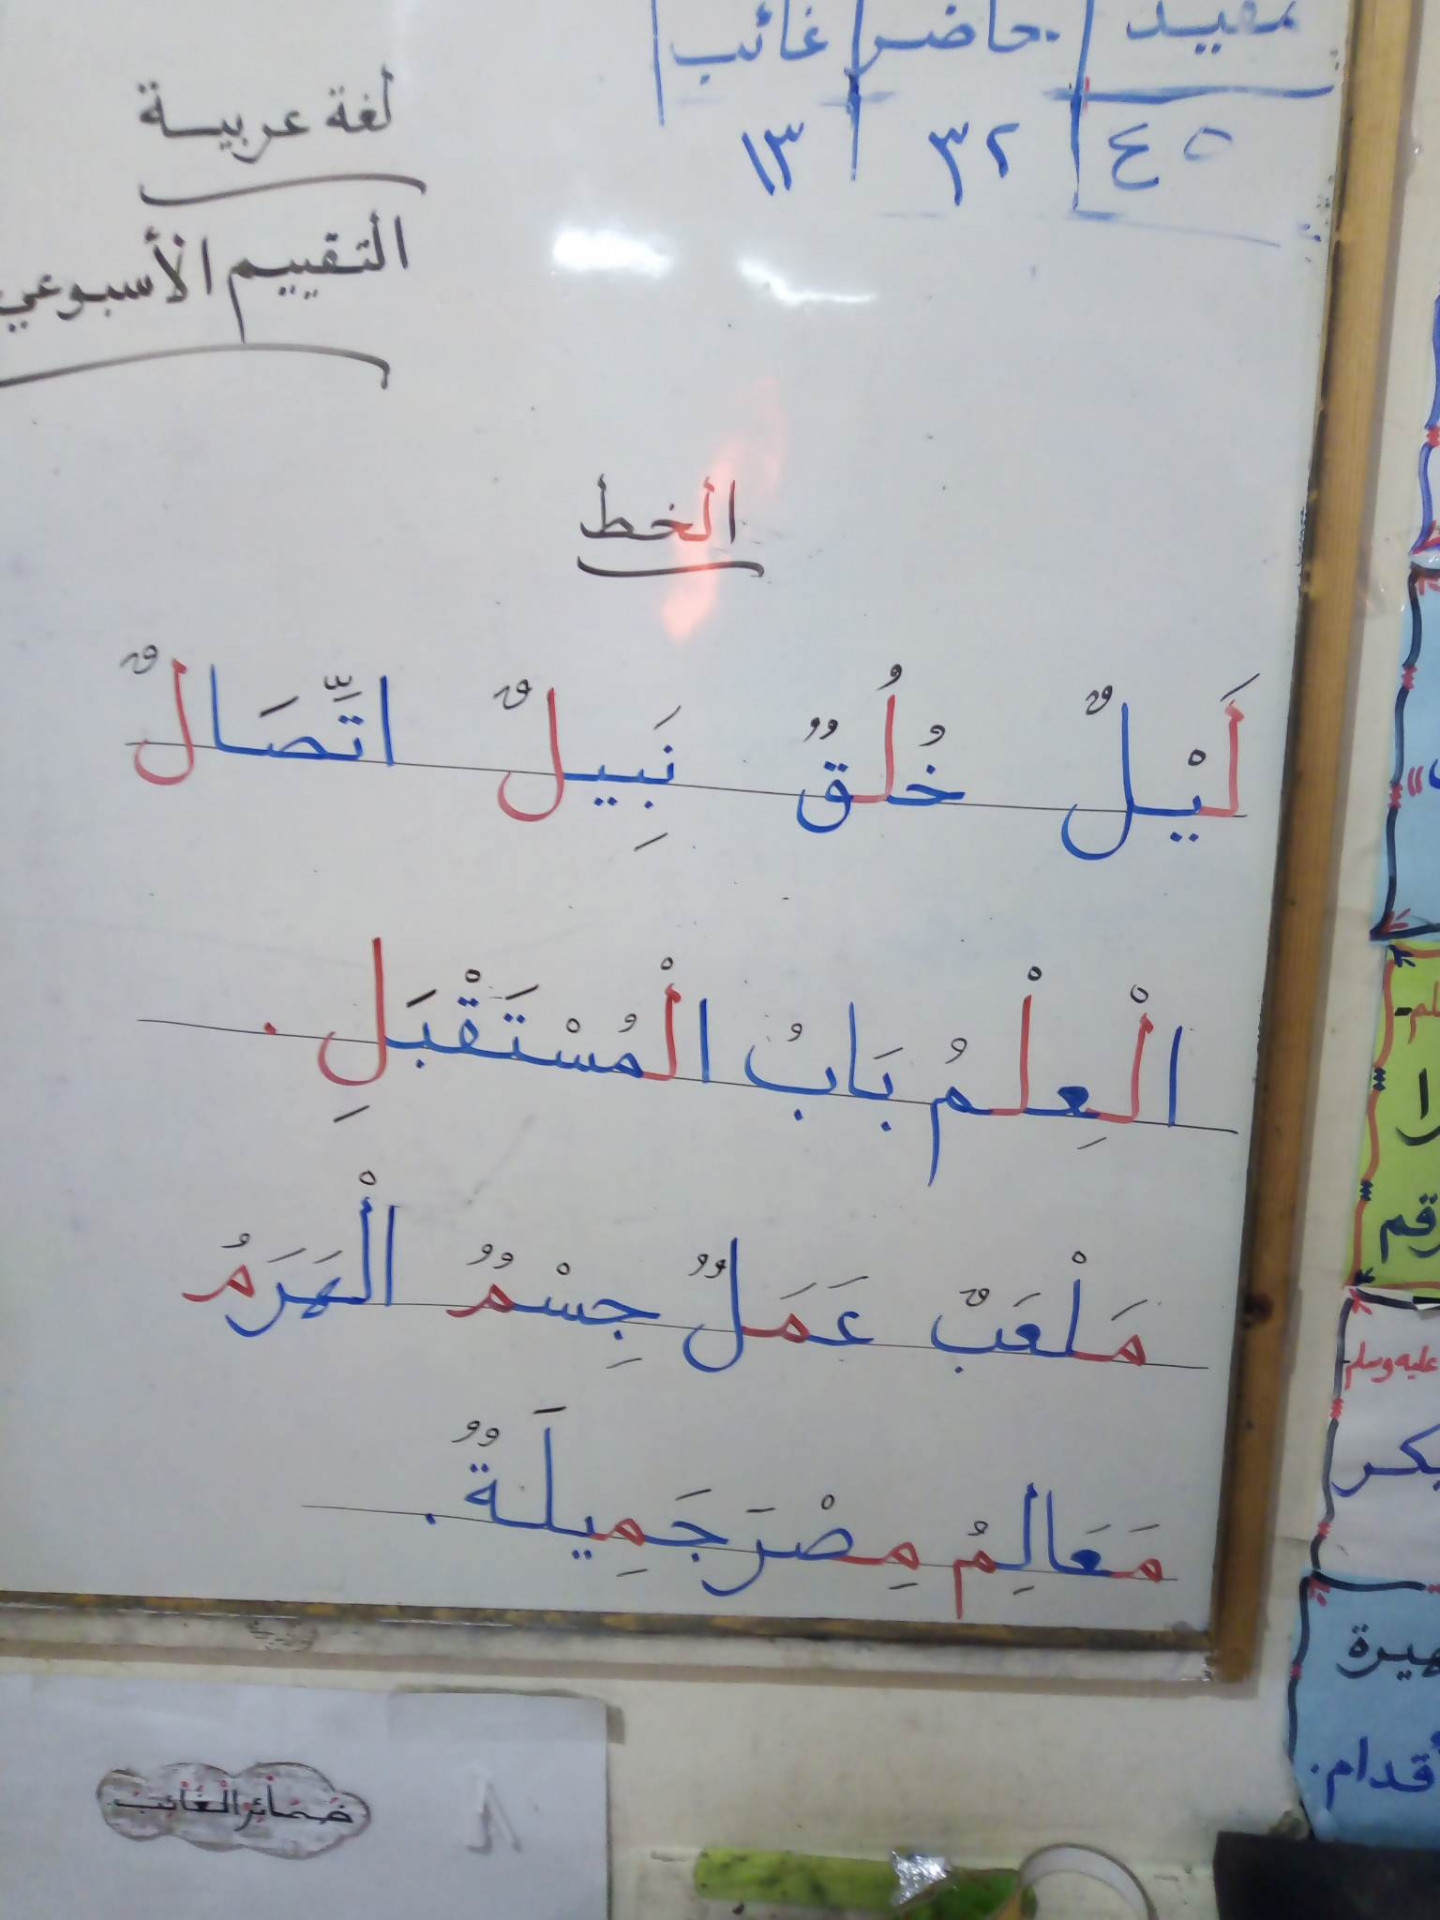 مقيد حاضر غائب
٤٥ ٣٢ ١٣
لغة عربية
التقييم الأسبوعي
الخط
لَيْلٌ خُلُقٌ نَبِيلٌ اتِّصَالٌ
الْعِلْمُ بَابُ الْمُسْتَقْبَلِ .
مَلْعَبٌ عَمَلٌ جِسْمٌ الْهَرَمُ
مَعَالِمُ مِصْرَ جَمِيلَةٌ .
رقم
عليه وسلم
بكر
أقدام.
ضمائر الغائب